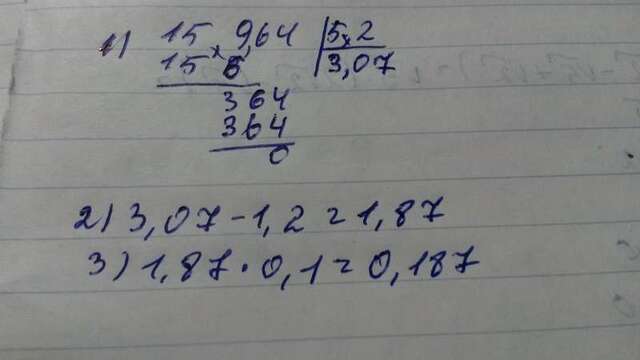 1) 15 9,64 | 5,2
15 6 | 3,07
364
364
0
2) 3,07 - 1,2 = 1,87
3) 1,87 · 0,1 = 0,187